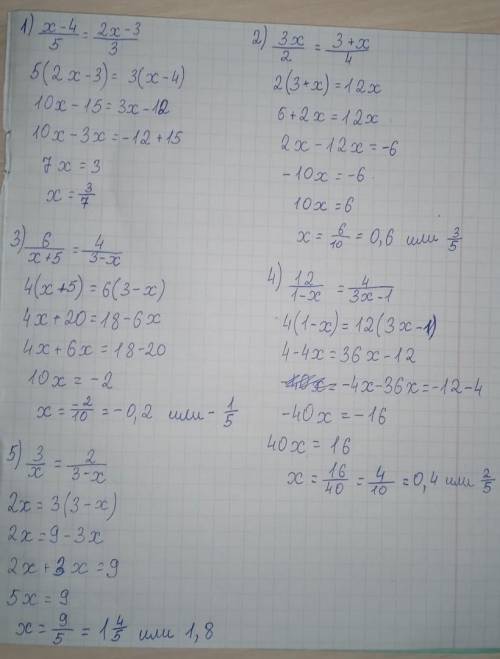 1) (x-4)/5 = (2x-3)/3
5(2x-3) = 3(x-4)
10x-15=3x-12
10x-3x=-12+15
7x=3
x=3/7
2) 3x/2 = (3+x)/4
2(3+x)=12x
6+2x=12x
2x-12x=-6
-10x=-6
10x=6
x=6/10=0,6 или 3/5
3) 6/(x+5) = 4/(3-x)
4(x+5)=6(3-x)
4x+20=18-6x
4x+6x=18-20
10x=-2
x=-2/10=-0,2 или -1/5
4) 12/(1-x) = 4/(3x-1)
4(1-x)=12(3x-1)
4-4x=36x-12
=-4x-36x=-12-4
-40x=-16
40x=16
x=16/40=4/10=0,4 или 2/5
5) 3/x = 2/(3-x)
2x=3(3-x)
2x=9-3x
2x+3x=9
5x=9
x=9/5=1 4/5 или 1,8